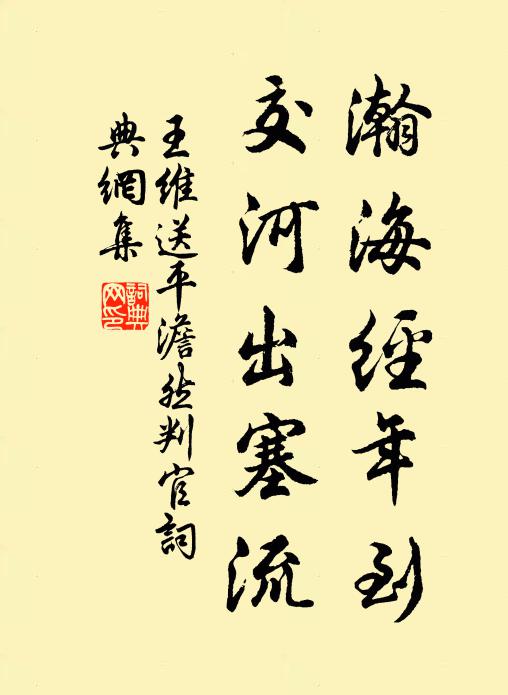 瀚海經年到
交河出塞流
王維送平澹然判官詞
典網集
詞典
网印